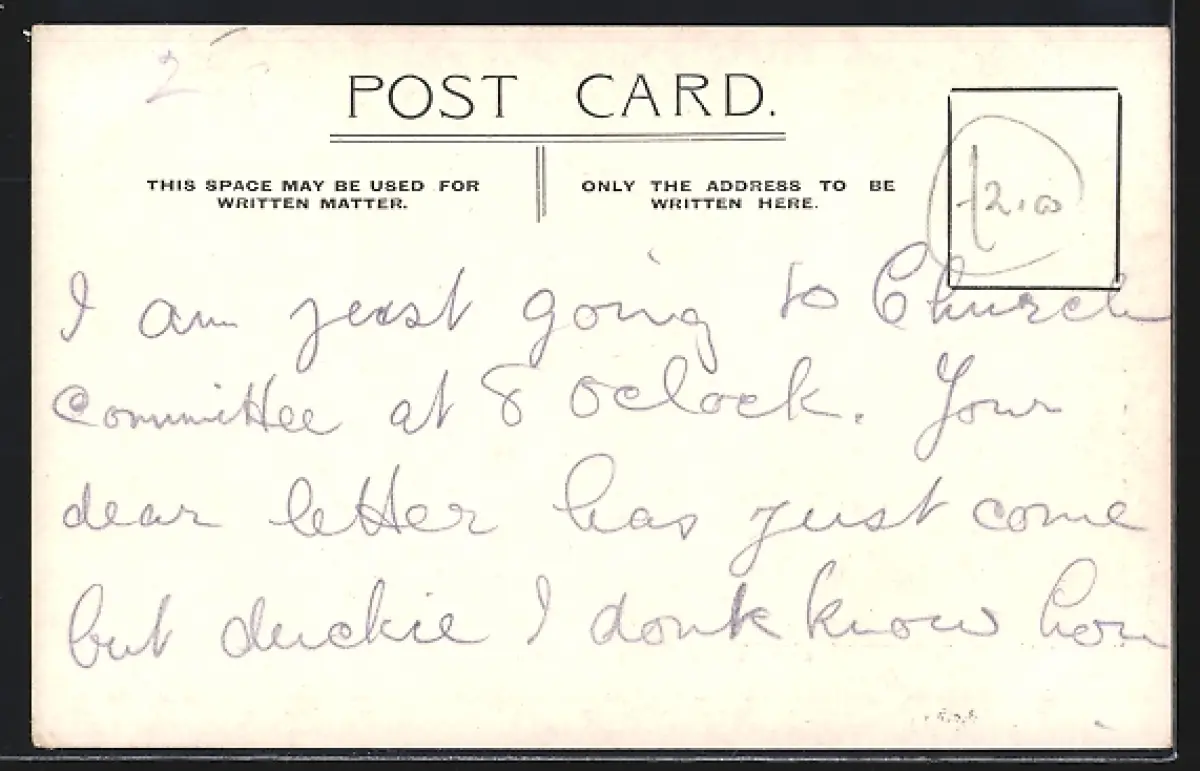 2
POST CARD.
THIS SPACE MAY BE USED FOR
WRITTEN MATTER.
ONLY THE ADDRESS TO BE
WRITTEN HERE.
I am just going to Church
Committee at 8 oclock. Your
dear letter has just come
but duckie I dont know how